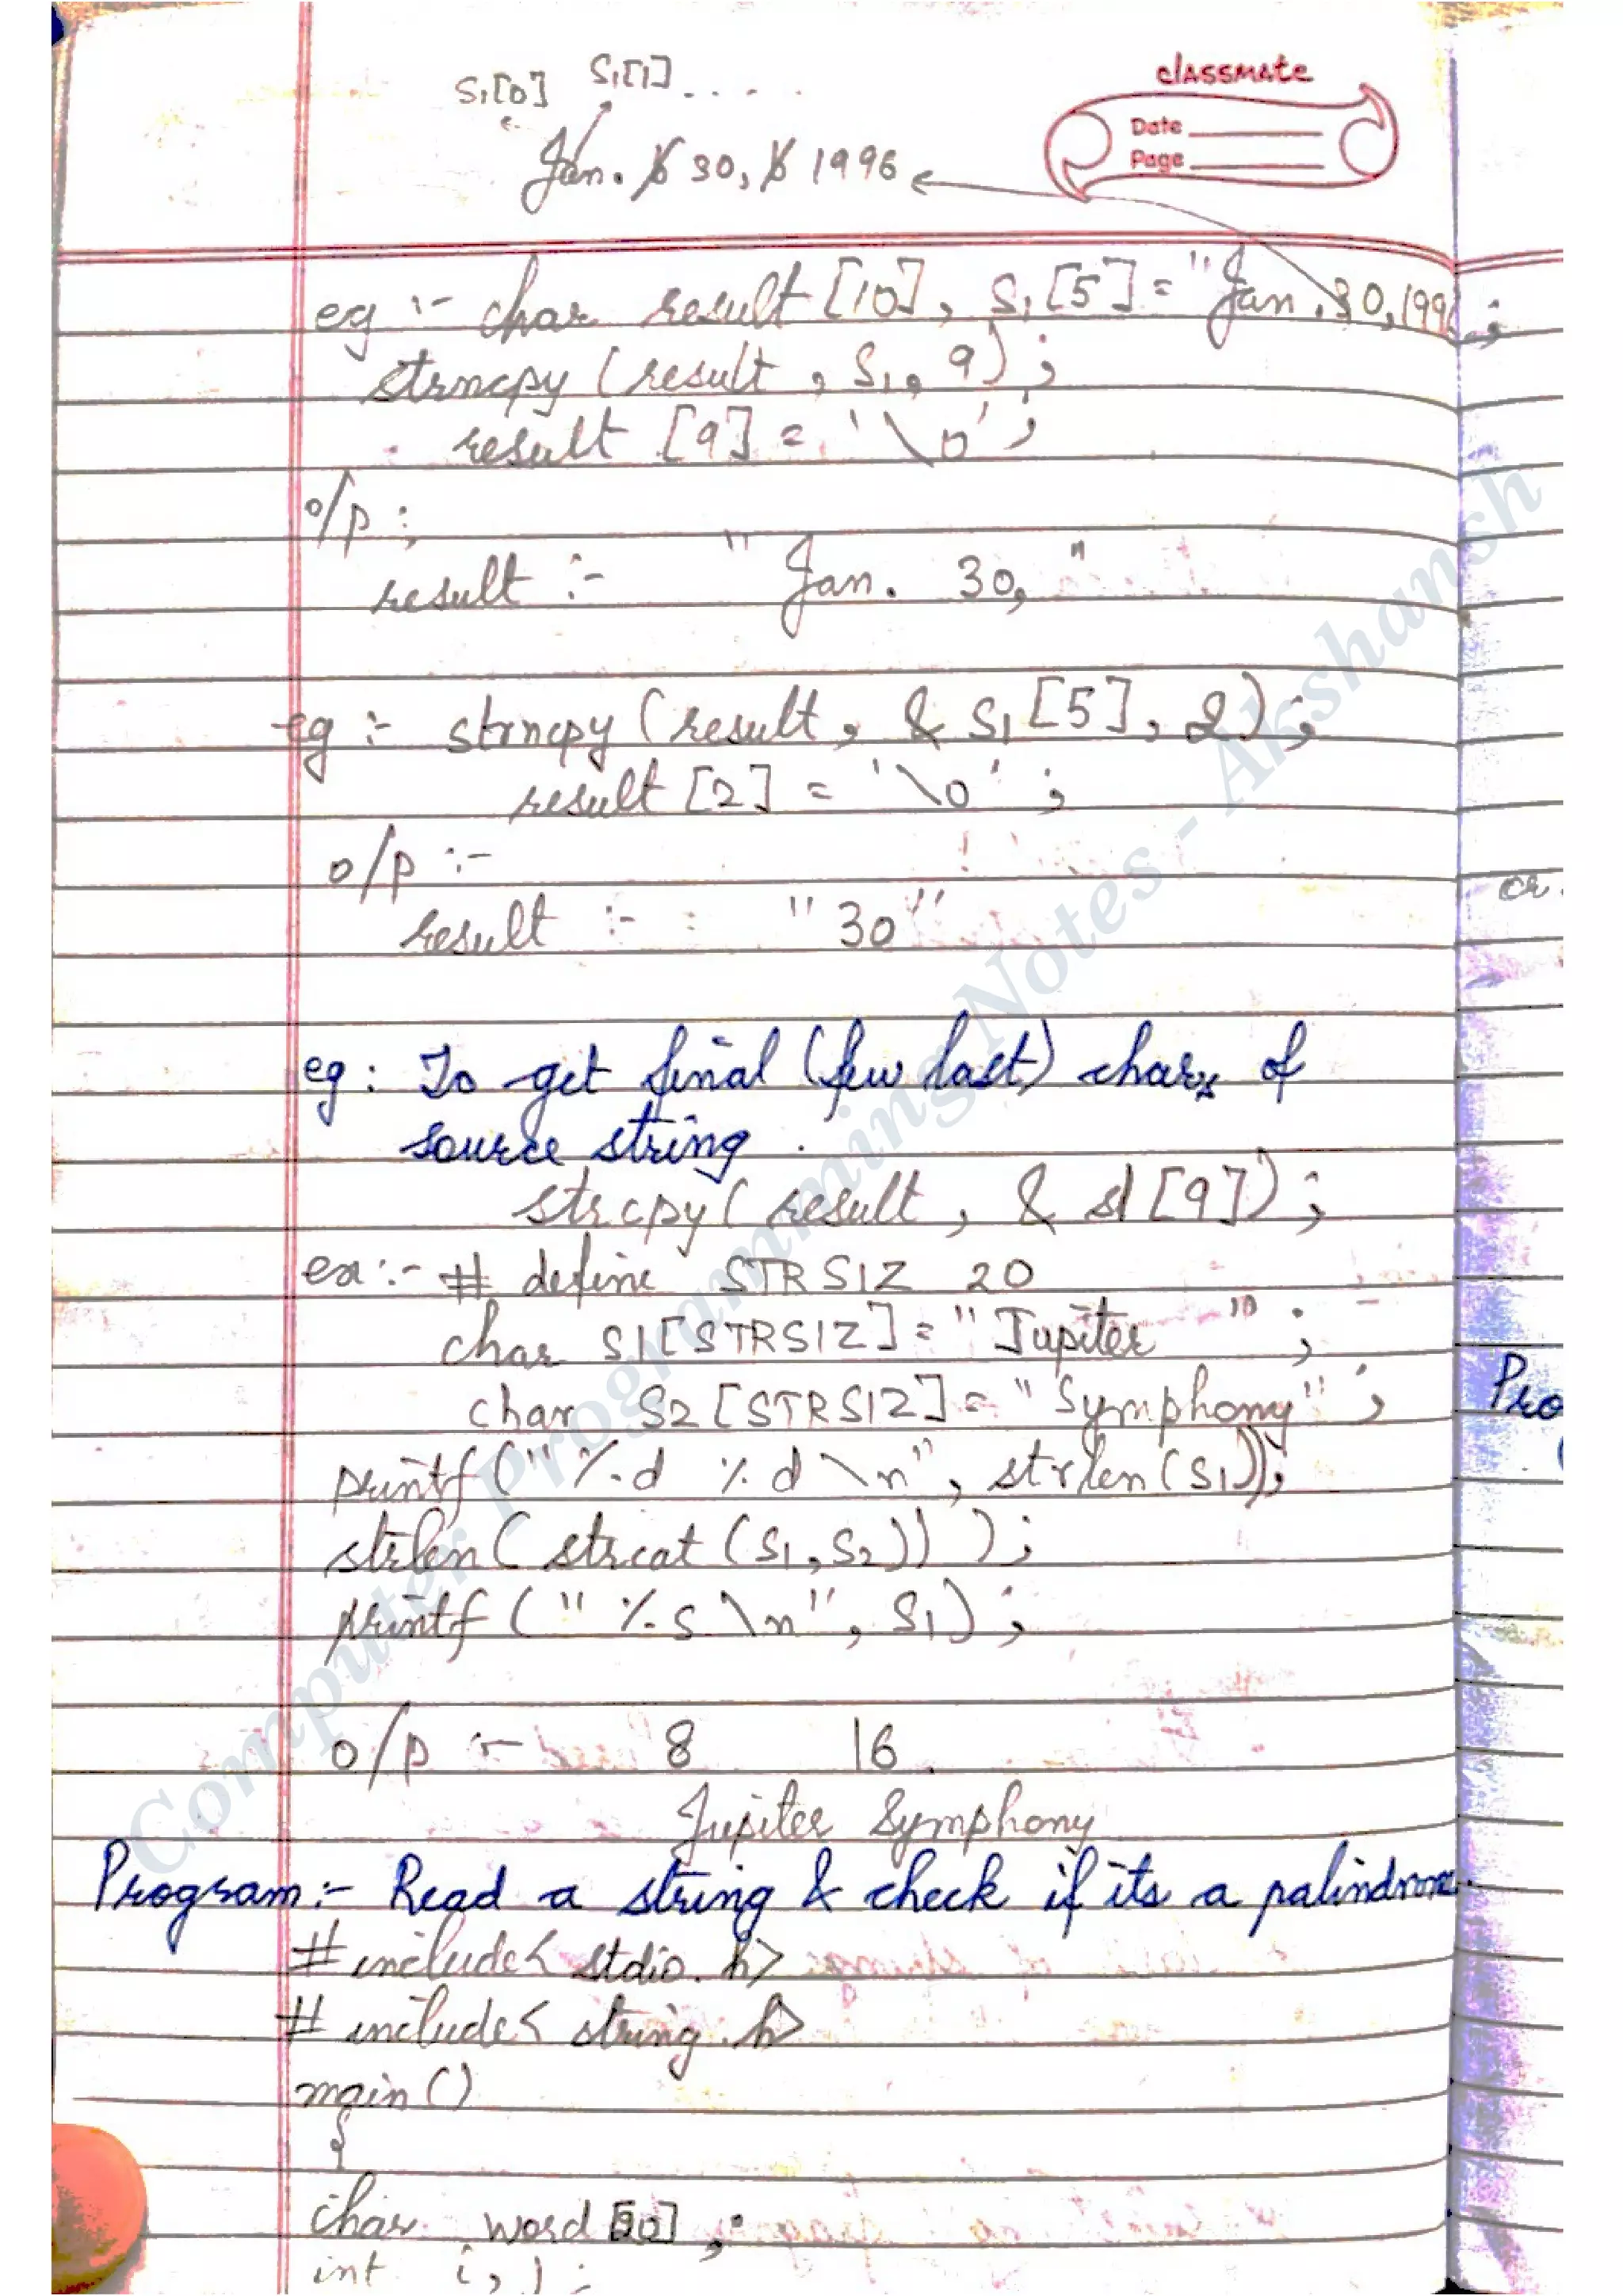 S1[0] S1[1] . . . .
classmate
Date
Page
Jan. ƀ 30, ƀ 1996
eg :- char result [10], S1[5] = "Jan. 30, 199 ;
strncpy (result, S1, 9);
result [9] = '\0';
o/p :
result :- "Jan. 30,"
eg :- strncpy (result, & S1[5], 2);
result [2] = '\0';
o/p :-
or.
result :- "30"
eg : To get final (few last) chars of
source string.
strcpy( result, & s1 [9]);
ex :- # define STRSIZ 20
char S1[STRSIZ] = "Jupiter ";
char S2 [STRSIZ] = "Symphony";
Pro
printf (" %d %d \n", strlen(S1));
strlen( strcat (S1, S2)) );
printf (" %s \n", S1);
o/p :- 8 16
Jupiter Symphony
Program :- Read a string & check if its a palindrome.
# include< stdio.h>
# include< string.h>
main ()
{
char word [20];
int i, j ;
Computer Programming Notes - Akshansh